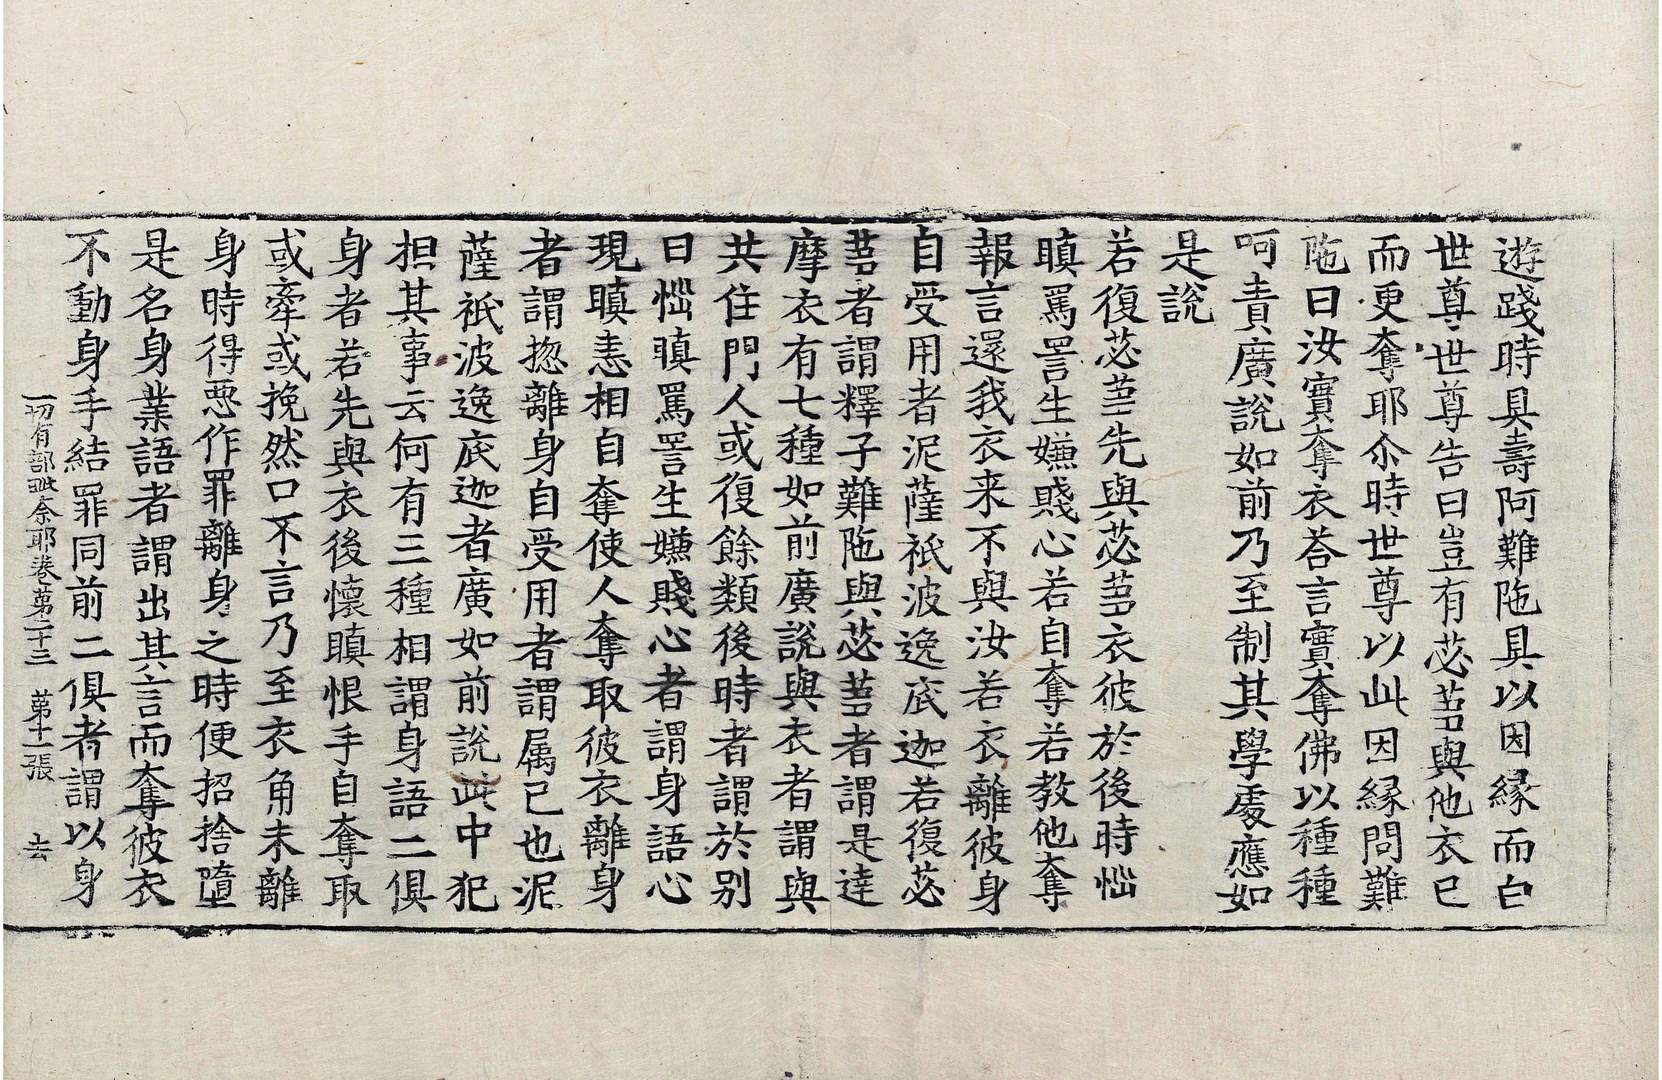 遊踐時具壽阿難陁具以因縁而白
世尊世尊告曰豈有苾芻與他衣已
而更奪耶尒時世尊以此因縁問難
陁曰汝實奪衣荅言實奪佛以種種
呵責廣說如前乃至制其學處應如
是說
若復苾芻先與苾芻衣彼於後時惱
瞋罵詈生嫌賤心若自奪若教他奪
報言還我衣来不與汝若衣離彼身
自受用者泥薩祇波逸底迦若復苾
芻者謂釋子難陁與苾芻者謂是達
摩衣有七種如前廣說與衣者謂與
共住門人或復餘類後時者謂於別
曰惱瞋罵詈生嫌賤心者謂身語心
現瞋恚相自奪使人奪取彼衣離身
者謂揔離身自受用者謂属己也泥
薩祇波逸底迦者廣如前說此中犯
担其事云何有三種相謂身語二俱
身者若先與衣後懷瞋恨手自奪取
或牽或挽然口不言乃至衣角未離
身時得悪作罪離身之時便招捨墮
是名身業語者謂出其言而奪彼衣
不動身手結罪同前二俱者謂以身
一切有部毗奈耶卷第二十三　第十一張　去